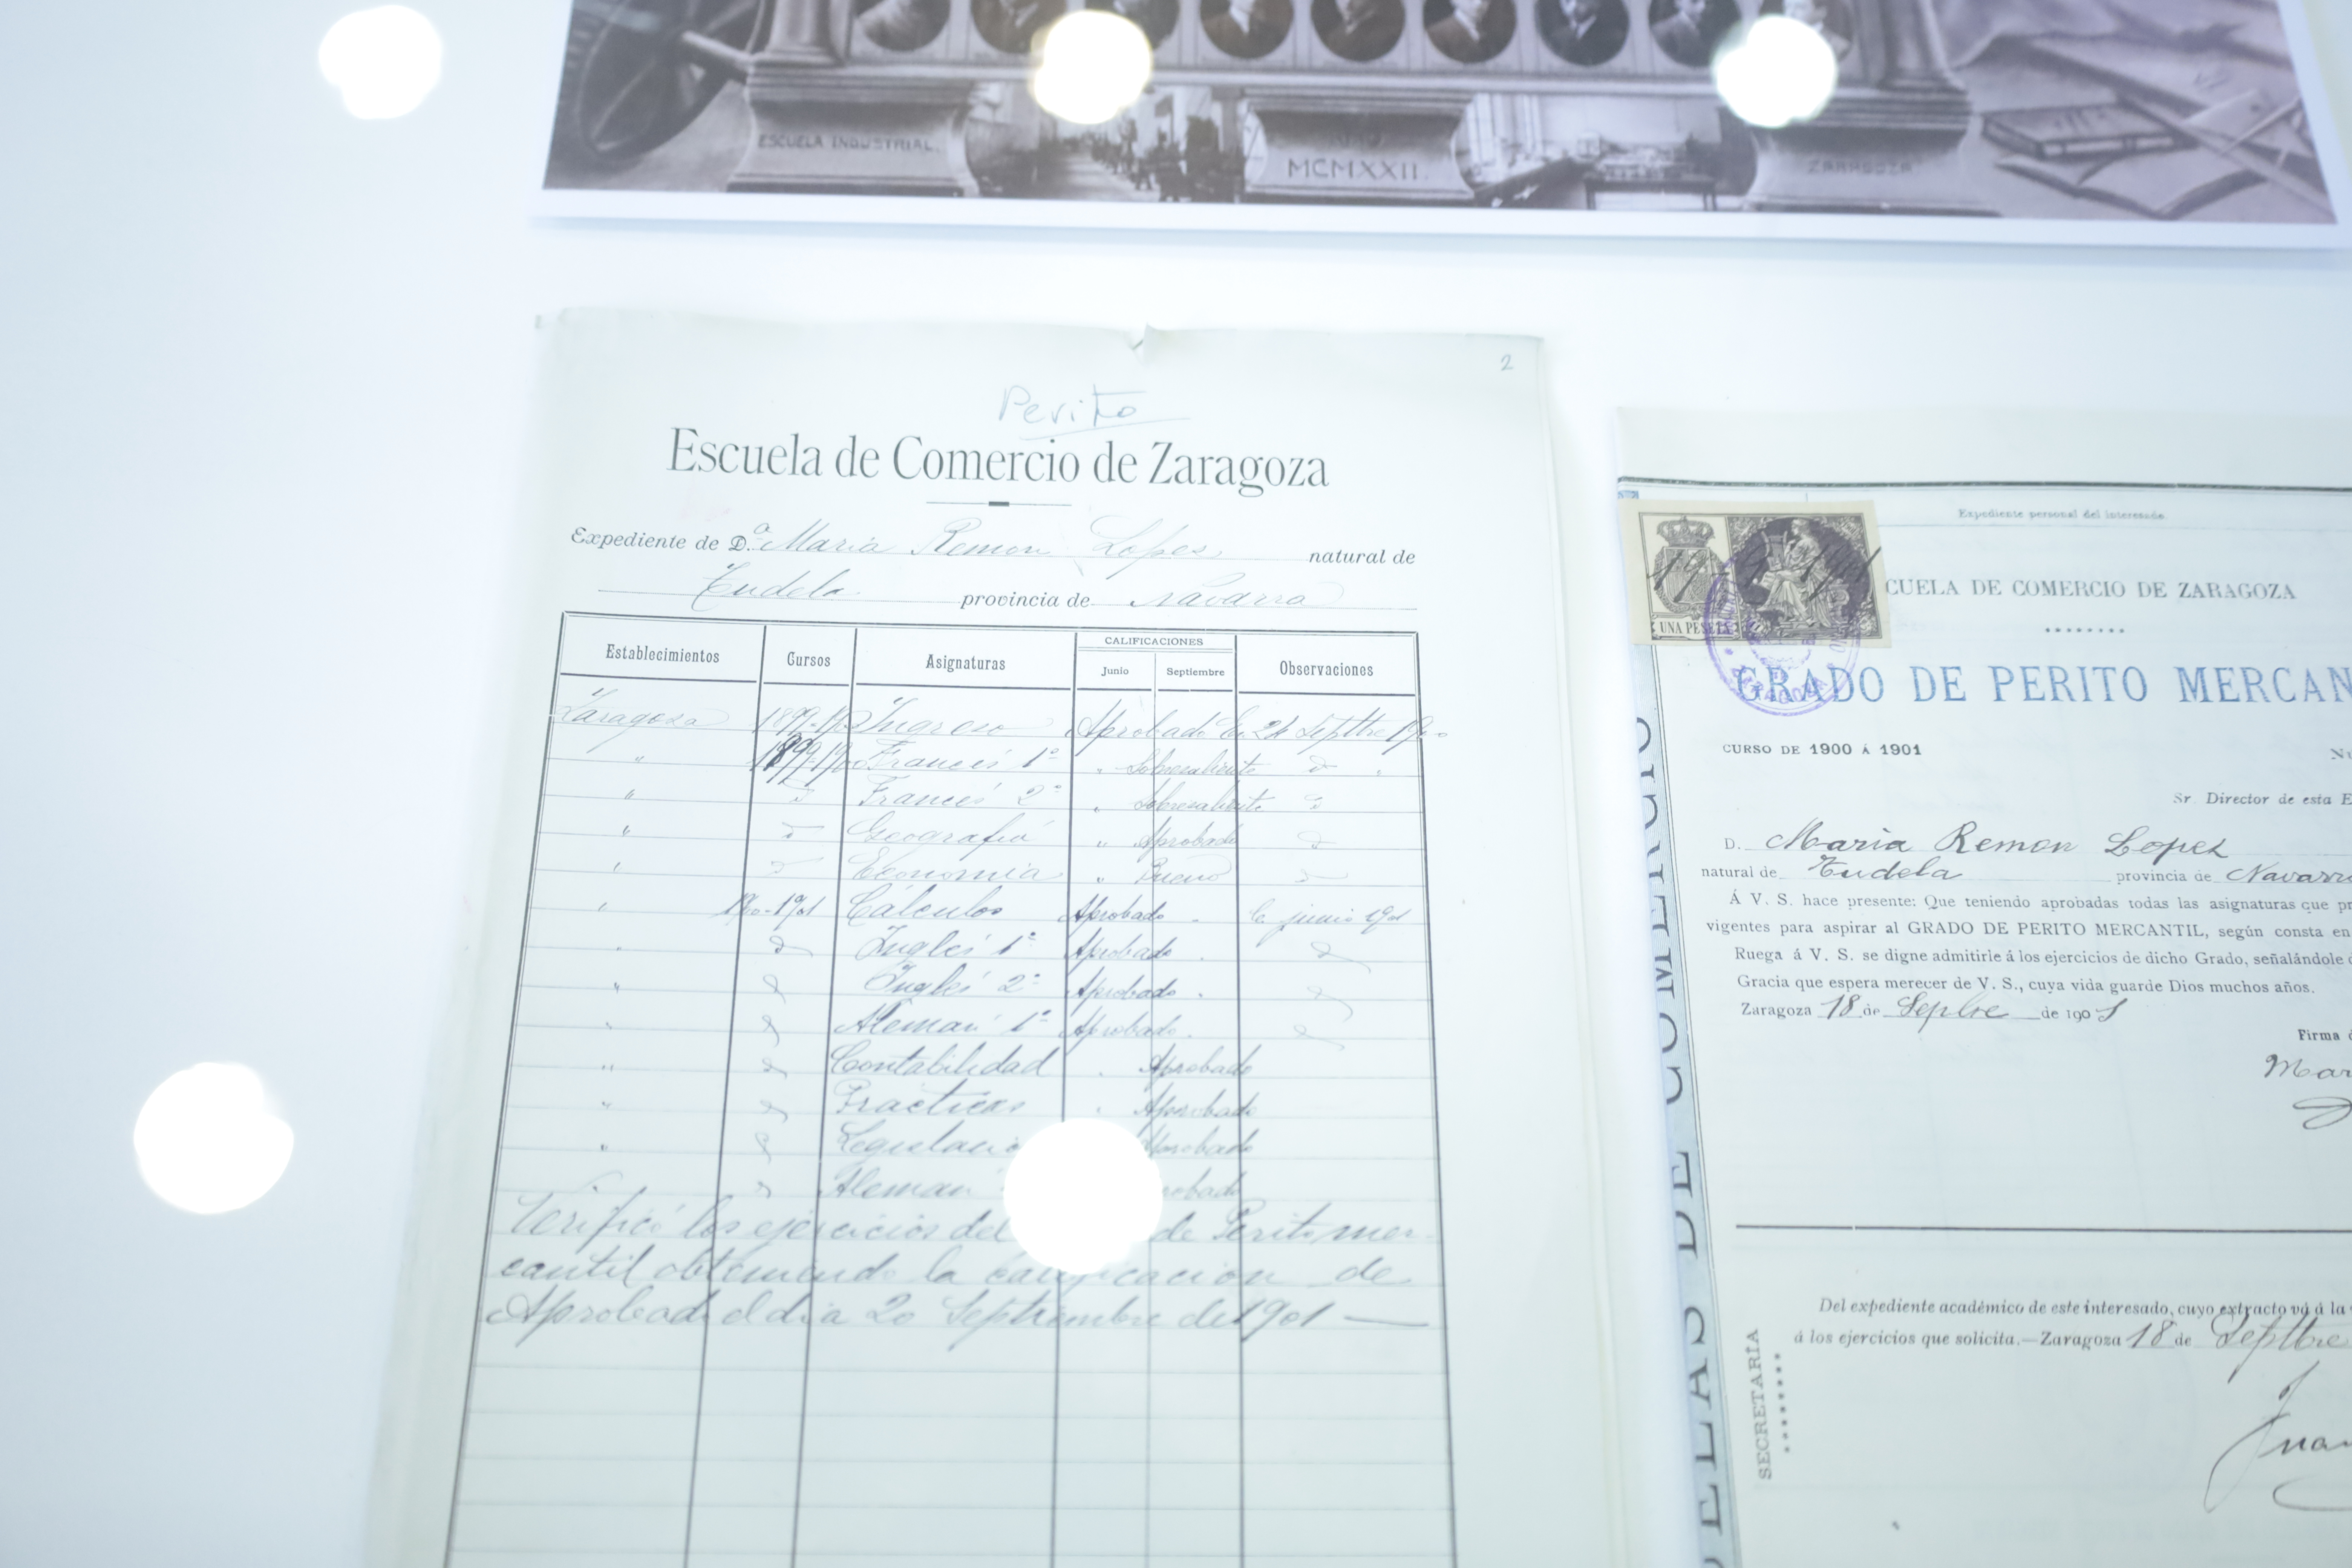 ESCUELA INDUSTRIAL.
MCMXXII.
ZARAGOZA
2
Perito
Escuela de Comercio de Zaragoza
Expediente de D.ª Maria Remon Lopez natural de
Tudela provincia de Navarra
Establecimientos Cursos Asignaturas CALIFICACIONES Observaciones
Junio Septiembre
Zaragoza Ingreso Aprobado En 24 Septbre
" 1899-1900 Francés 1º " Sobresaliente
" Francés 2º " Sobresaliente
" Geografía " Aprobado
" Economia " Bueno
" 1900-1901 Cálculos Aprobado . junio 1901
" Inglés 1º Aprobado .
" Inglés 2º Aprobado .
" Alemán 1º Aprobado .
" Contabilidad . Aprobado
" Practicas . Aprobado
" Aprobado
Aleman
Verificó los ejercicios del de Perito mer-
cantil obteniendo la calificacion de
Aprobado el dia 20 Septiembre de 1901 —
Expediente personal del interesado
UNA PESETA
CUELA DE COMERCIO DE ZARAGOZA
GRADO DE PERITO MERCAN
CURSO DE 1900 Á 1901
Sr. Director de esta E
D. Maria Remon Lopez
natural de Tudela provincia de Navarra
Á V. S. hace presente: Que teniendo aprobadas todas las asignaturas que pr
vigentes para aspirar al GRADO DE PERITO MERCANTIL, según consta en
Ruega á V. S. se digne admitirle á los ejercicios de dicho Grado, señalándole
Gracia que espera merecer de V. S., cuya vida guarde Dios muchos años.
Zaragoza 18 de Sepbre de 1901
Firma
Mar
Del expediente académico de este interesado, cuyo extracto vá á la
á los ejercicios que solicita.—Zaragoza 18 de Septbre
SECRETARÍA
Juan
ELAS DE COMERCIO